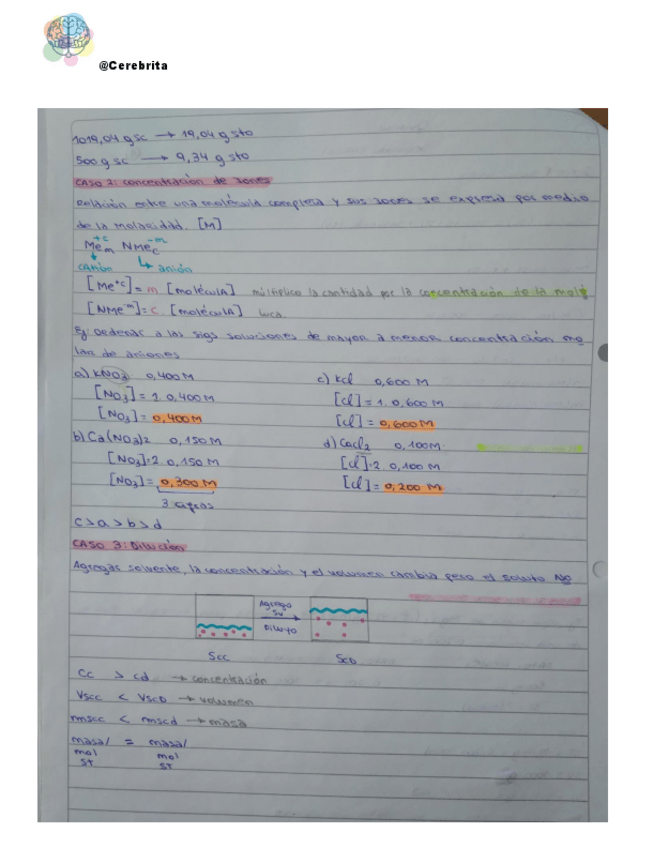 @Cerebrita
1019,04 g sc → 19,04 g sto
500 g sc → 9,34 g sto
CASO 2: concentración de iones
Relación entre una molécula compleja y sus iones se expresa por medio
de la molaridad. [M]
Me m +c NMe c -m
catión anión
[Me+c] = m [molécula] multiplico la cantidad por la concentración de la molé
[NMe-m] = c. [molécula] luca.
Ej: ordenar a las sigs soluciones de mayor a menor concentración mo
lar de aniones
a) KNO3 0,400 M
[NO3] = 1. 0,400M
[NO3] = 0,400M
b) Ca(NO3)2 0,150 M
[NO3]=2. 0,150M
[NO3] = 0,300 M
3 cifras
c) KCl 0,600 M
[Cl] = 1. 0,600M
[Cl] = 0,600M
d) CaCl2 0,100M
[Cl]=2. 0,100M
[Cl] = 0,200 M
c > a > b > d
CASO 3: Dilución
Agregar solvente, la concentración y el volumen cambia pero el soluto NO
Agrego
sv
Diluyo
Scc ScD
Cc > cd → concentración
Vscc < VscD → volumen
mscc < mscd → masa
masa/ = masa/
mol mol
ST ST